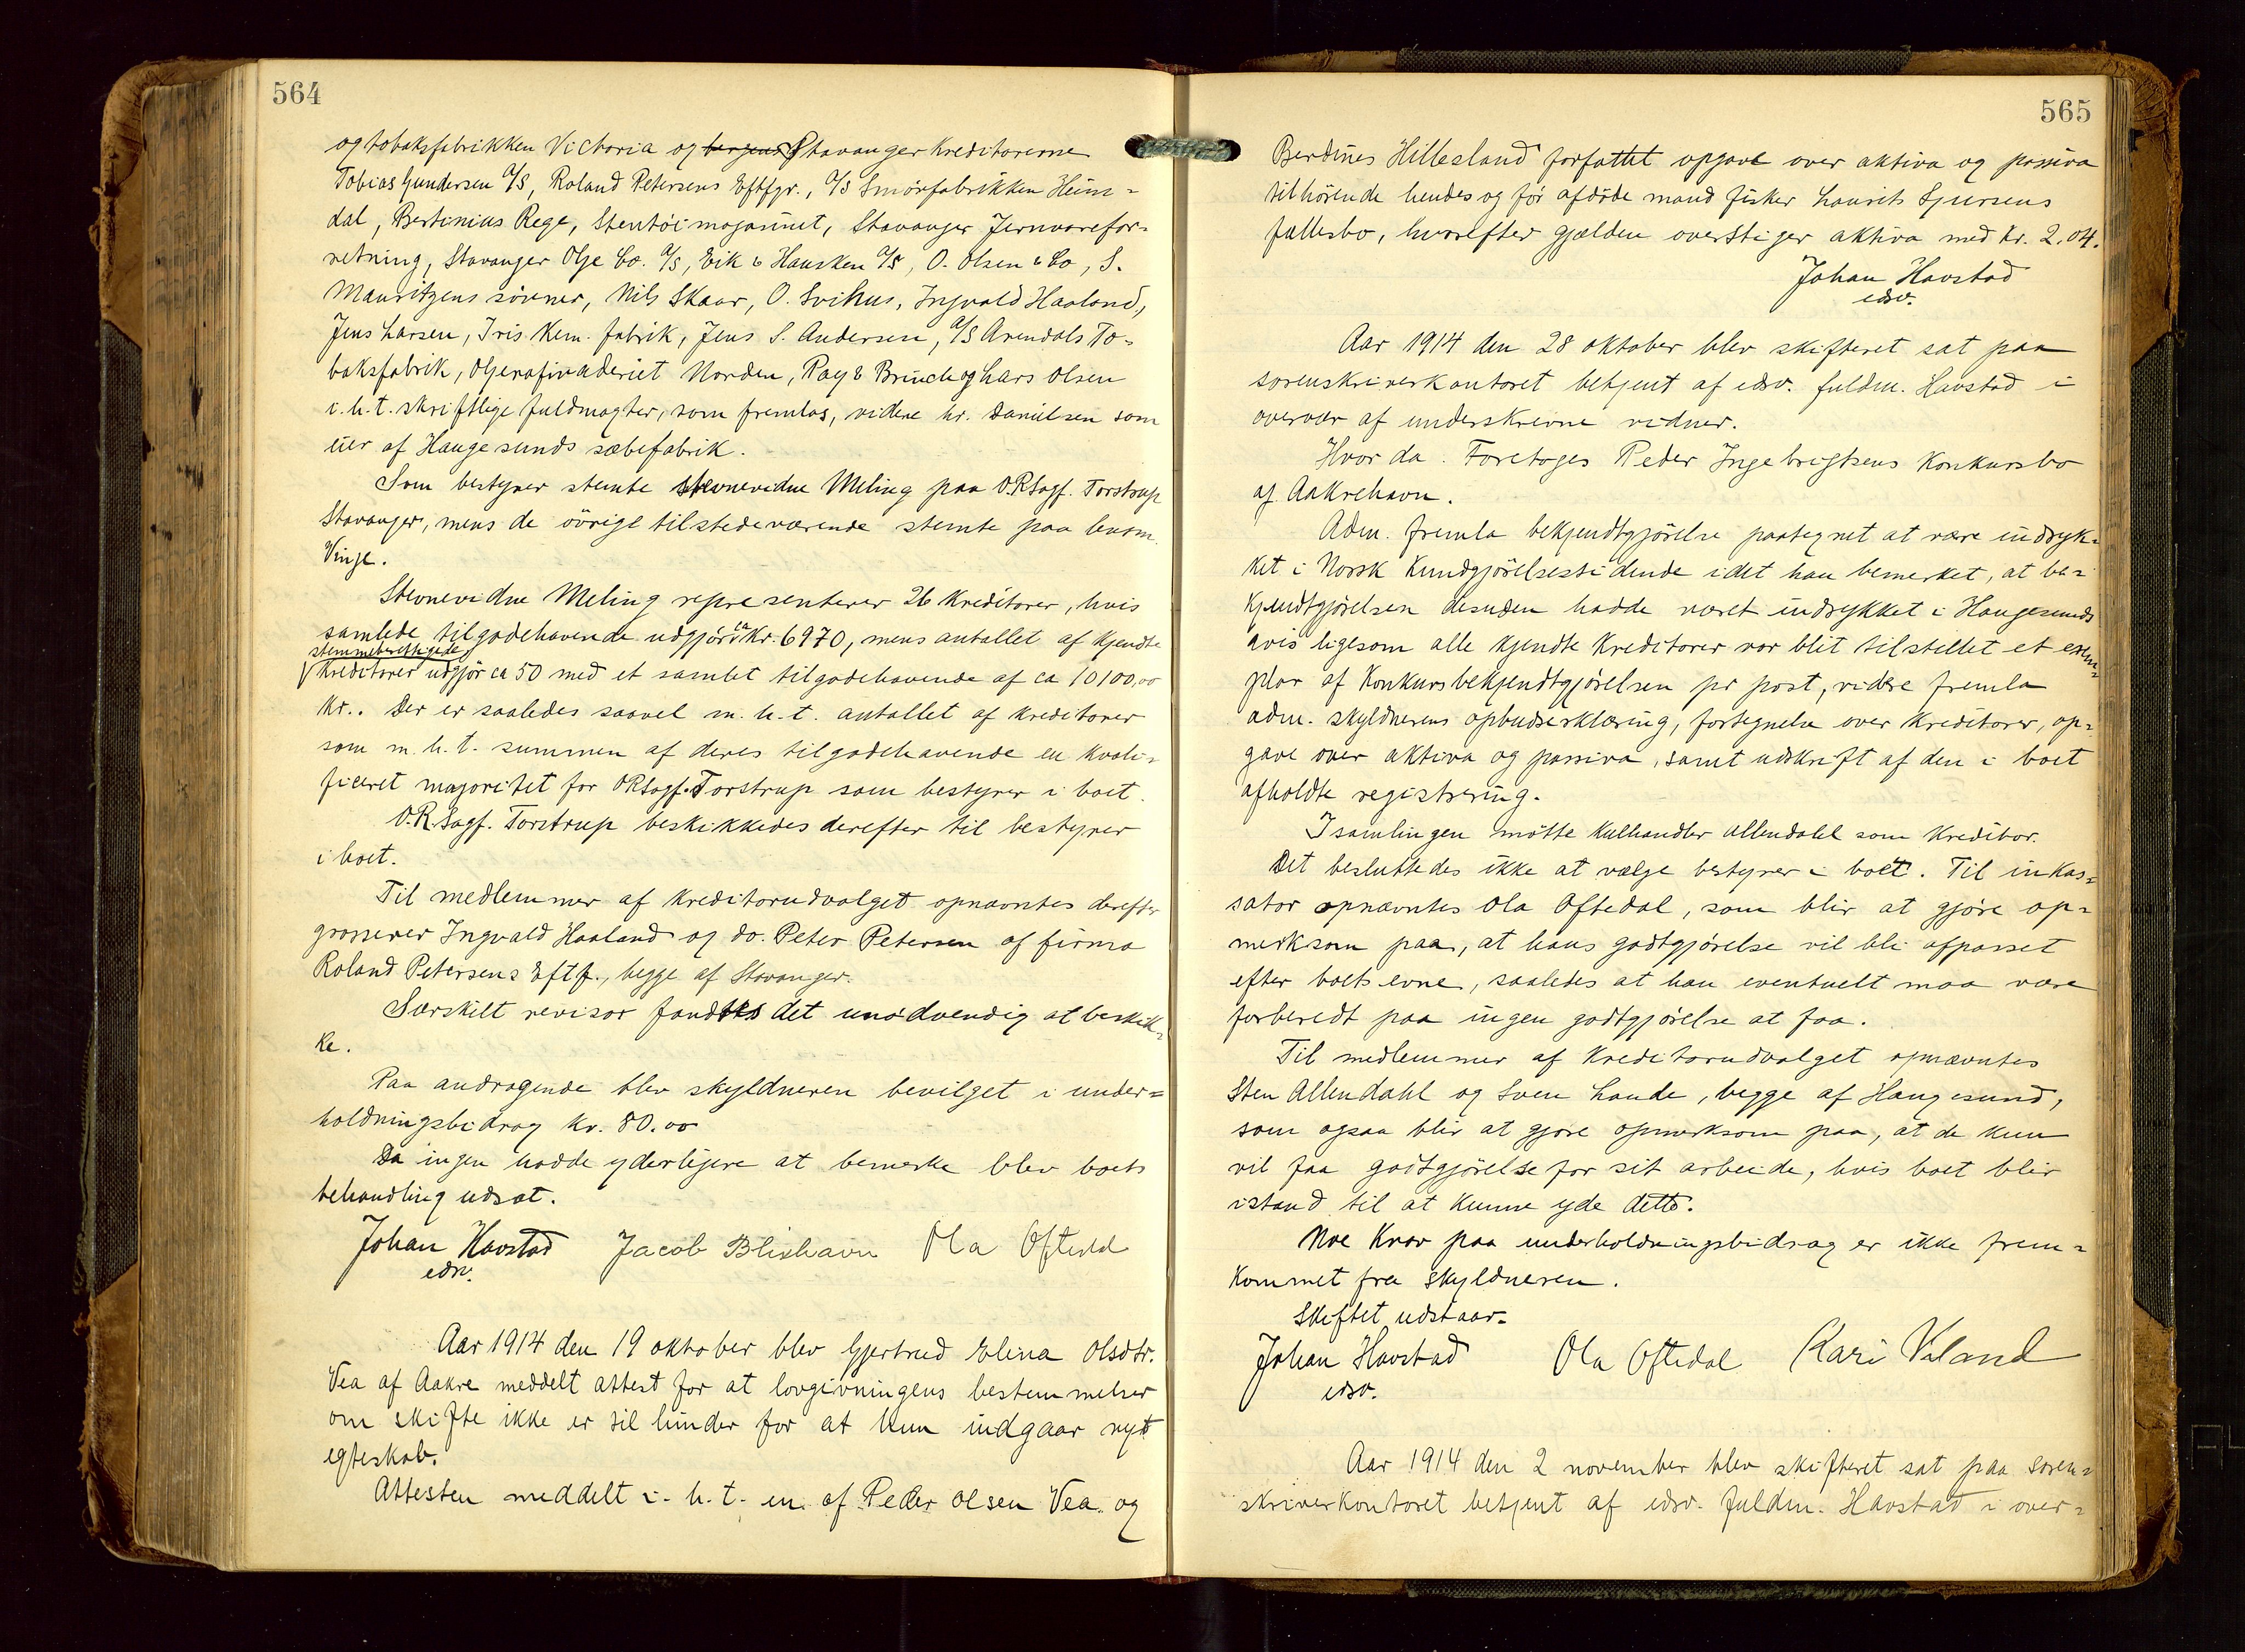 564
og tobaksfabrikken Victoria og bergens Stavanger kreditorerne
Tobias Gundersen A/S, Roland Petersens Eftfgr., A/S Smörfabrikken Heim=
dal, Bertinius Rege, Stentöimagasinet, Stavanger Jernvarefor=
retning, Stavanger Olje Co. A/S, Eik & Hausken A/S, O. Olsen & Co, S.
Mauritzens sönner, Nils Skaar, O. Svihus, Ingvald Haaland,
Jens Larsen, Iris kem. fabrik, Jens S. Andersen, A/S Arendals To=
baksfabrik, Oljerafinaderiet Norden, Ray & Bruch og Lars Olsen
i.h.t. skriftlige fuldmagter, som fremlas, videre hr. Danielsen som
eier af Haugesunds sæbefabrik.
Som bestyrer stemte stevnevidne Meling paa O.R.Sagf. Torstrup
Stavanger, mens de övrige tilstedeværende stemte paa lensm.
Vinje.
Stevnevidne Meling representerer 26 kreditorer, hvis
samlede tilgodehavende udgjör ca kr. 6970, mens antallet af kjendte
stemmeberettigede
kreditorer udgjör ca 50 med et samlet tilgodehavende af ca 10100,00
kr.. Der er saaledes saavel m.h.t. antallet af kreditorer
som m.h.t. summen af deres tilgodehavende en kvali=
ficeret majoritet for ORSagf. Torstrup som bestyrer i boet.
O.R.Sagf. Torstrup beskikkedes derefter til bestyrer
i boet.
Til medlemmer af kreditorudvalget opnævntes derefter
grosserer Ingvald Haaland og do. Peter Petersen af firma
Roland Petersens Eftf., begge af Stavanger.
Særskilt revisor fandtes det unödvendig at beskik=
ke.
Paa andragende blev skyldneren bevilget i under=
holdningsbidrag kr. 80.00
Da ingen hadde yderligere at bemerke blev boets
behandling udsat.
Johan Havstad Jacob Blishavn Ola Oftedal
edsv.
Aar 1914 den 19 oktober blev Gjertrud Elina Olsdtr.
Vea af Aakre meddelt attest for at lovgivningens bestemmelser
om skifte ikke er til hinder for at hun indgaar nyt
egteskab.
Attesten meddelt i.h.t. en af Peder Olsen Vea og
565
Berdines Hillesland forfattet opgave over aktiva og passiva
tilhörende hendes og för afdöde mand fisker Laurits Sjursens
fællesbo, hvorefter gjælden overstiger aktiva med kr. 2,04.
Johan Havstad
edsv.
Aar 1914 den 28 oktober blev skifteret sat paa
sorenskriverkontoret betjent af edsv. fuldm. Havstad i
overvær af underskrevne vidner.
Hvor da. Foretoges Peder Ingebrigtsens konkursbo
af Aakrehavn.
Adm. fremla bekjendtgjörelse paategnet at være indryk=
ket i Norsk Kundgjörelsestidende idet han bemerket, at be=
kjendtgjörelsen desuden hadde været indrykket i Haugesunds
avis ligesom alle kjendte kreditorer var blit tilstillet et exem=
plar af konkursbekjendtgjörelsen pr post, videre fremla
adm. skyldnerens opbudserklæring, fortegnelse over kreditorer, op=
gave over aktiva og passiva, samt udskrift af den i boet
afholdte registrering.
I samlingen mötte kulhandler Allendahl som kreditor.
Det besluttedes ikke at vælge bestyrer i boet. Til inkas=
sator opnævntes Ola Oftedal, som blir at gjöre op=
merksom paa, at hans godtgjörelse vil bli afpasset
efter boets evne, saaledes at han eventuelt maa være
forberedt paa ingen godtgjörelse at faa.
Til medlemmer af kreditorudvalget opnævntes
Sten Allendahl og Sven Lande, begge af Haugesund,
som ogsaa blir at gjöre opmerksom paa, at de kun
vil faa godtgjörelse for sit arbeide, hvis boet blir
istand til at kunne yde dette.
Noe krav paa underholdningsbidrag er ikke frem=
kommet fra skyldneren.
Skiftet udstaar.
Johan Havstad Ola Oftedal Kari Valand
edsv.
Aar 1914 den 2 november blev skifteret sat paa soren=
skriverkontoret betjent af edsv. fuldm. Havstad i over=